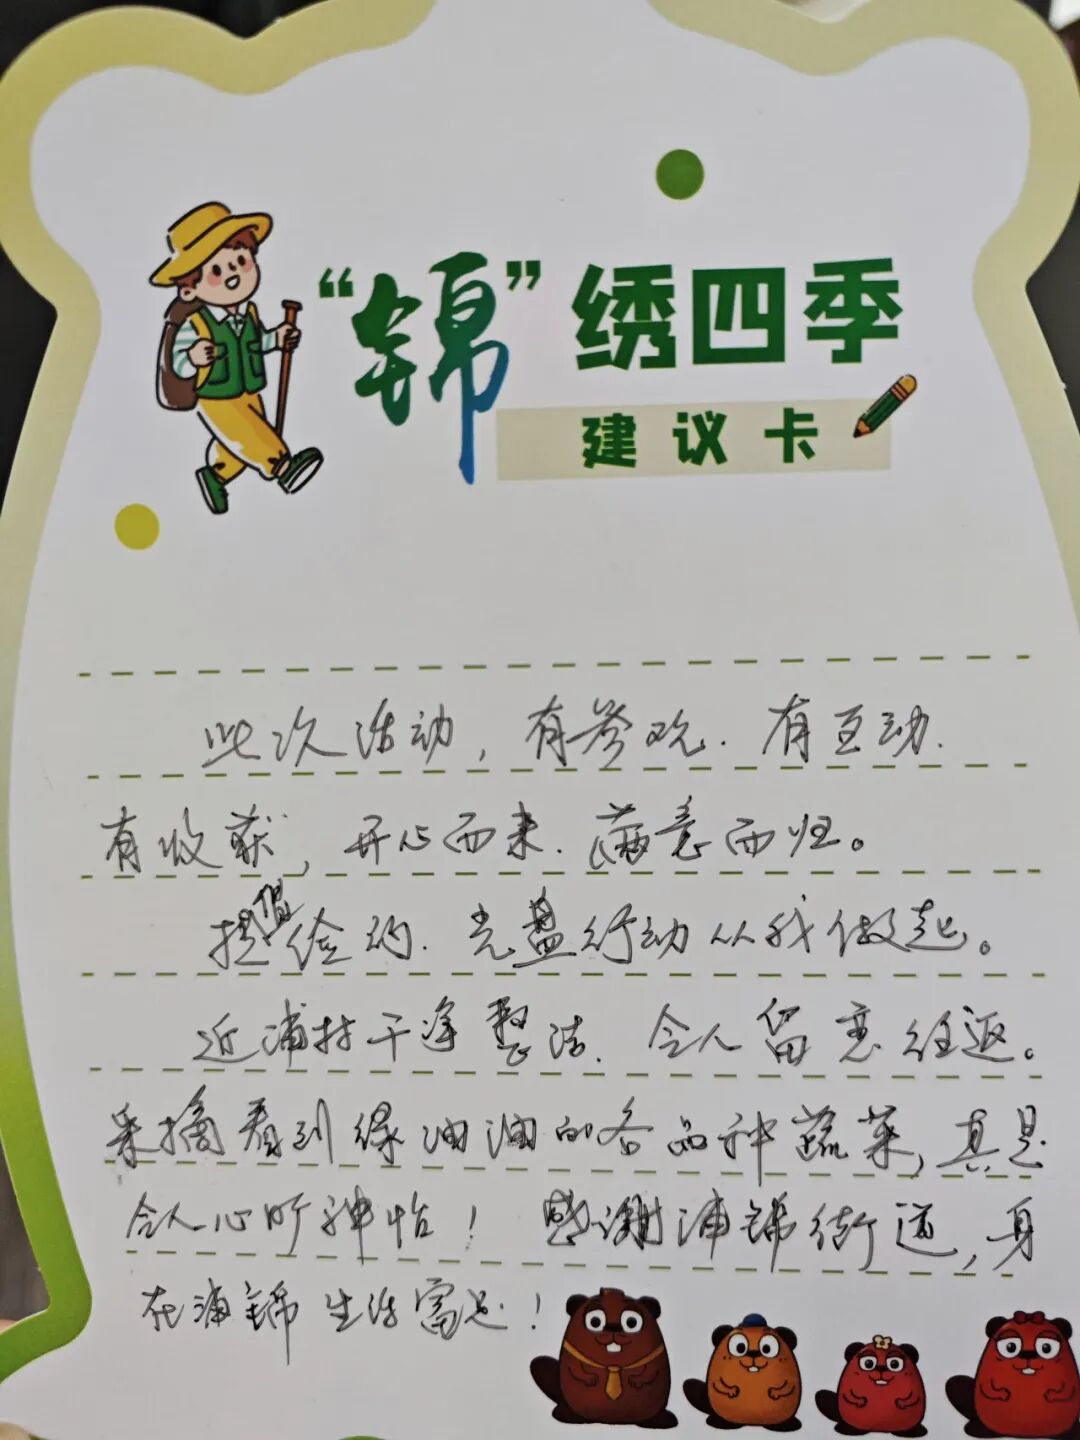 “锦”绣四季
建议卡
此次活动，有参观．有互动．
有收获，开心而来．满意而归。
提倡俭约．光盘行动从我做起。
近浦村干净整洁．令人留恋往返。
采摘看到绿油油的各品种蔬菜，真是
令人心旷神怡！感谢浦锦街道，身
在浦锦生活富足！